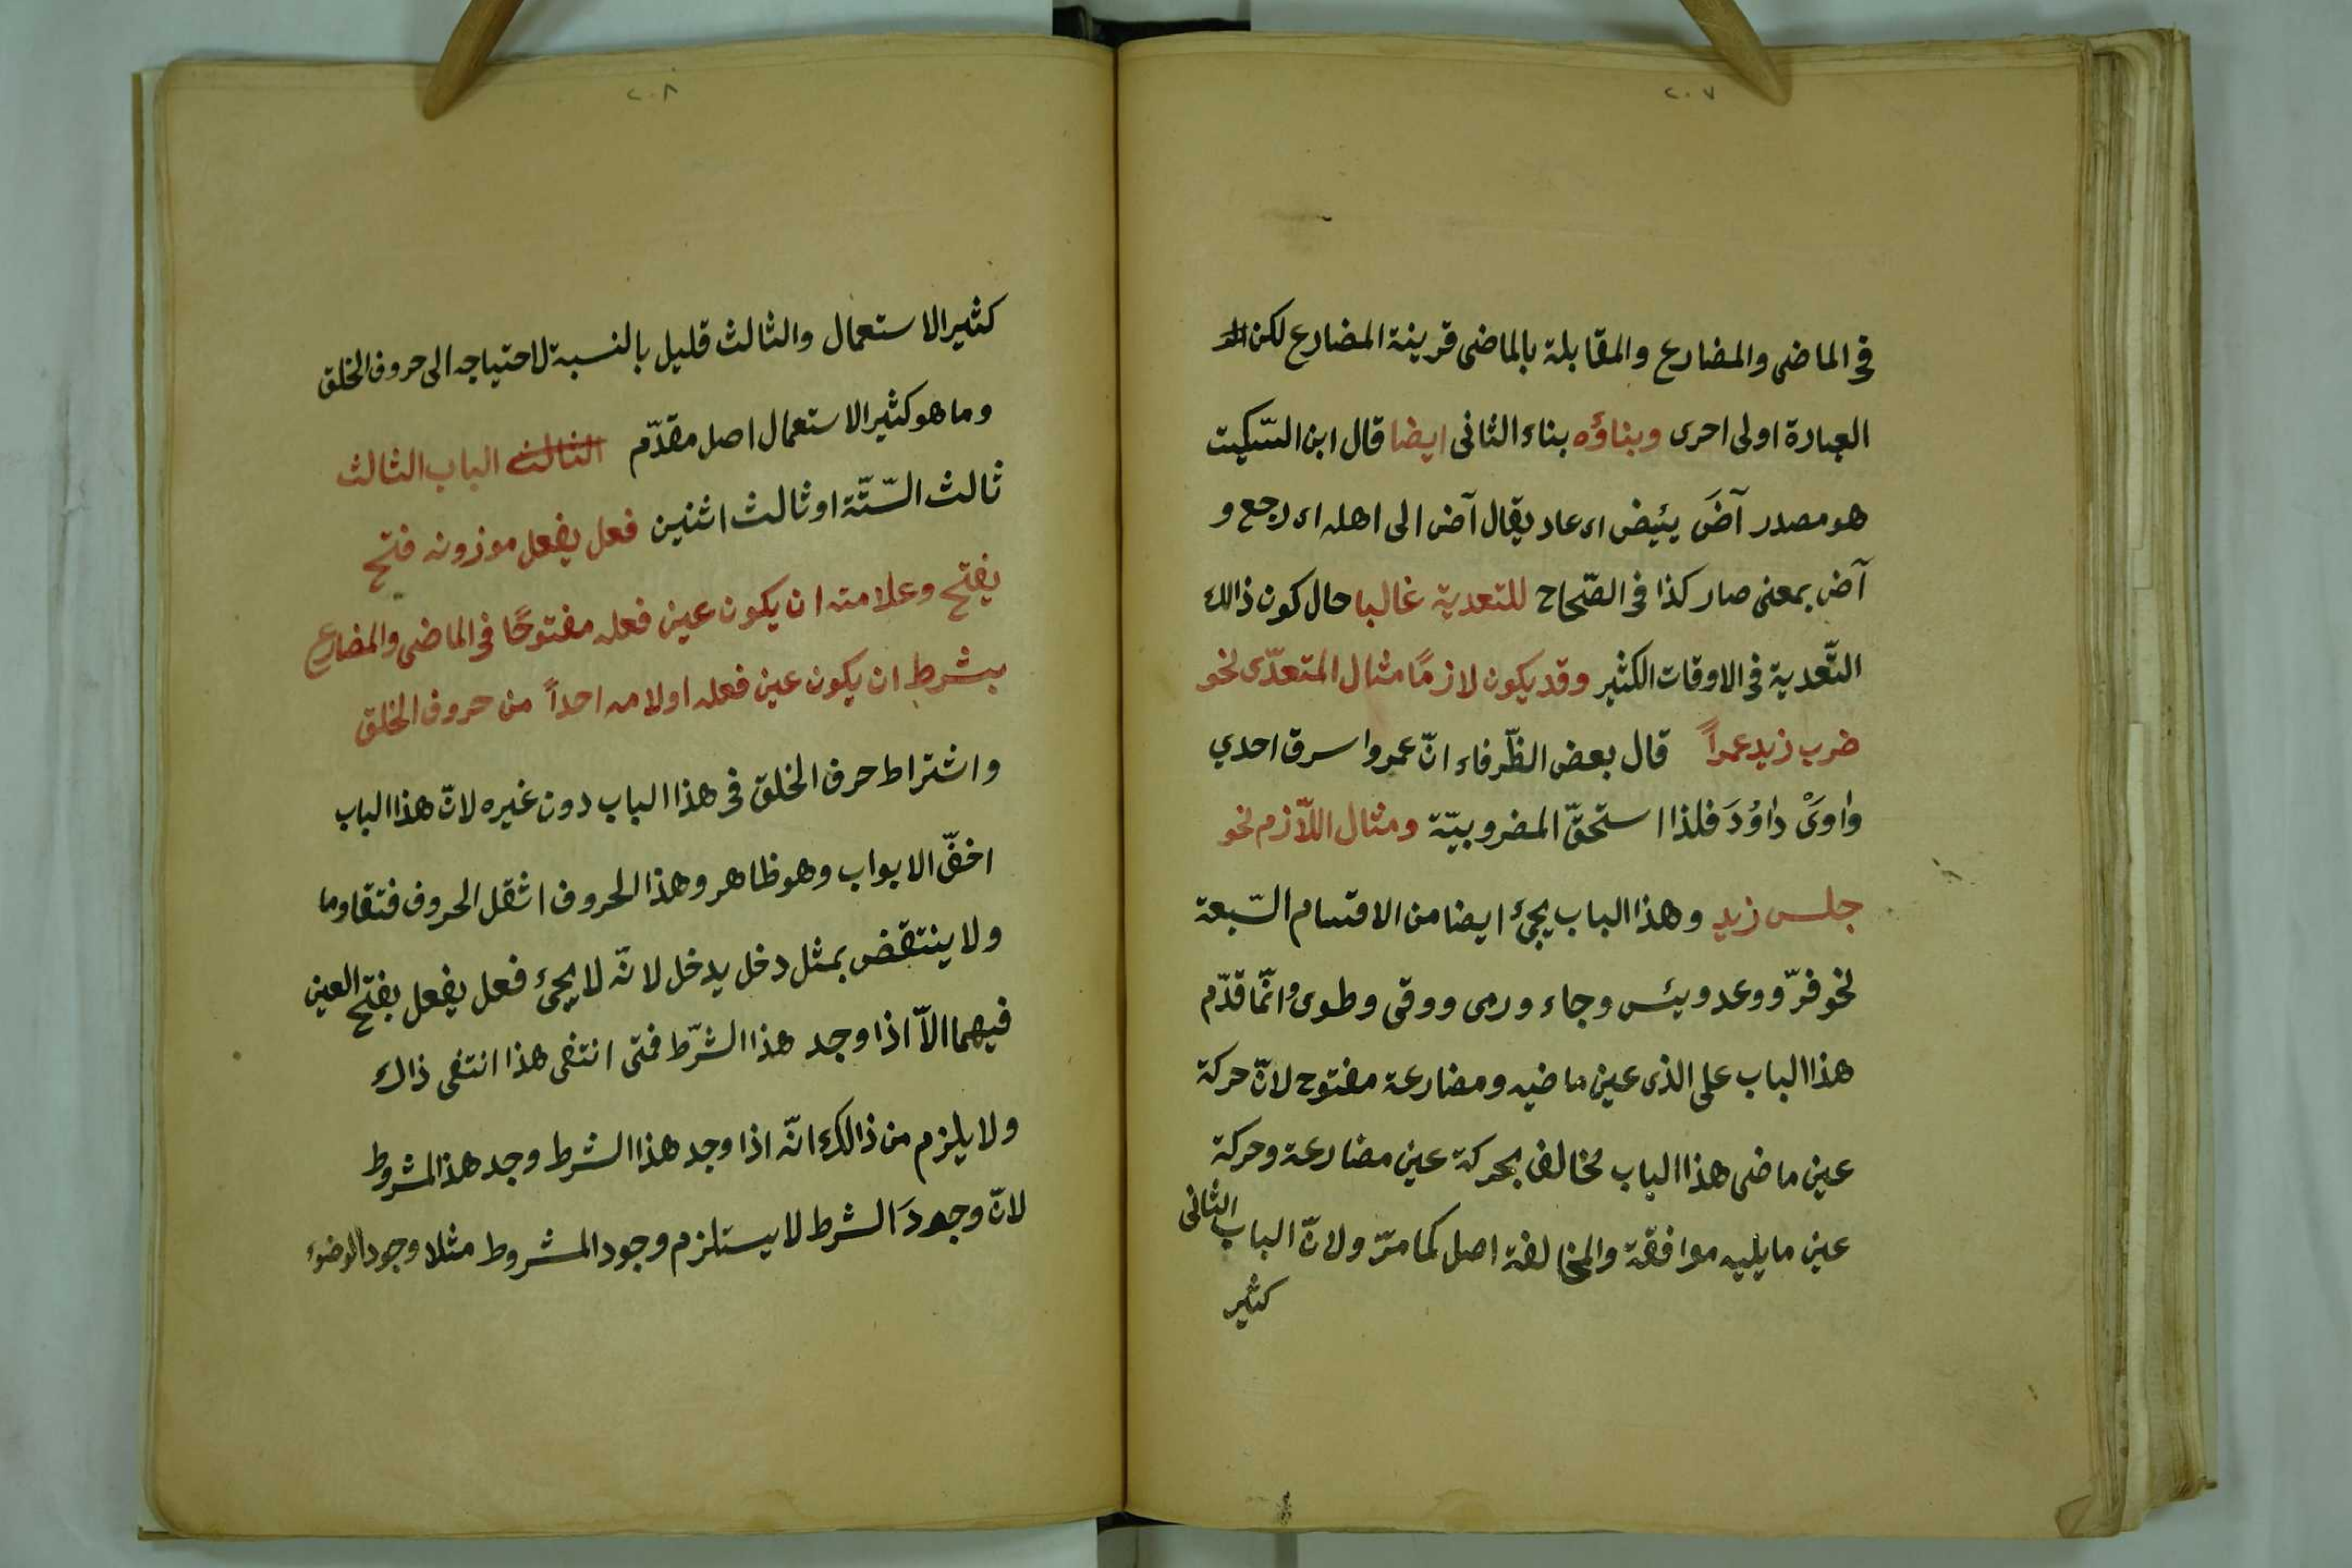 ٢٠٧
في الماضى والمضارع والمقابلة بالماضى قرينة المضارع لكن
العبارة اولى احرى وبناؤه بناء الثانى ايضا قال ابن السّكيت
هو مصدر آضَ يئيض اى عاد يقال آض الى اهله اى رجع و
آض بمعنى صار كذا فى الصّحاح للتعدية غالبا حال كون ذالك
التّعدية فى الاوقات الكثير وقد يكون لازمًا مثال المتعدّى نحو
ضرب زيد عمراً قال بعض الظّرفاء انّ عمروا سرق احدي
واوَىْ داوُدَ فلذا استحقّ المضروبيّة ومثال اللّازم نحو
جلس زيد وهذا الباب يجئ ايضا من الاقسام السّبعة
نحو فرّ ووعد ويئس وجاء ورمى ووقى وطوى وانّما قدّم
هذا الباب على الذى عين ماضيه ومضارعة مفتوح لانّ حركة
عين ماضى هذا الباب مخالف بحركة عين مضارعة وحركة
عين مايليه موافقة والمخالفة اصل كما مرّ ولانّ الباب الثانى
كثير
٢٠٨
كثير الاستعمال والثالث قليل بالنسبة لاحتياجه الى حروف الخلق
وما هو كثير الاستعمال اصل مقدّم الثالث الباب الثالث
ثالث السّتّة او ثالث اثنين فعل يفعل موزونه فتح
يفتح وعلامته ان يكون عين فعله مفتوحًا فى الماضى والمضارع
بشرط ان يكون عين فعله اولامه احداً من حروف الخلق
واشتراط حرف الخلق فى هذا الباب دون غيره لانّ هذا الباب
اخفّ الابواب وهو ظاهر وهذا الحروف اثقل الحروف فتقاوما
ولا ينتقض بمثل دخل يدخل لانّه لا يجئ فعل يفعل بفتح العين
فيهما الاّ اذا وجد هذا الشرّط فمتى انتفى هذا انتفى ذاك
ولا يلزم من ذالك انّه اذا وجد هذا الشرط وجد هذ المشروط
لانّ وجودَ الشرط لا يستلزم وجود المشروط مثلا وجود الوضوء